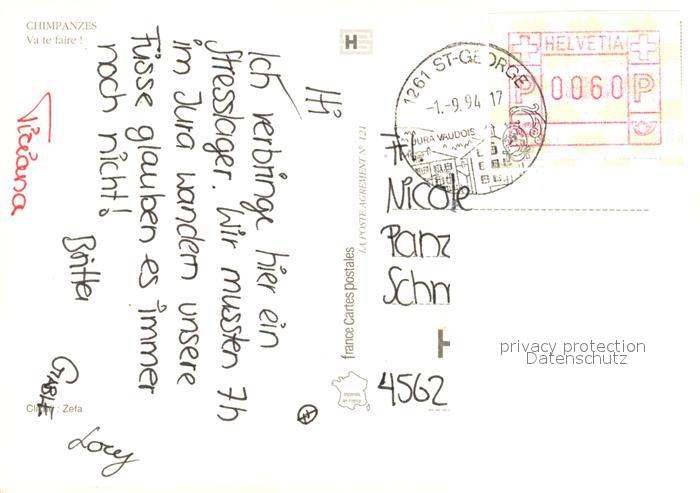 CHIMPANZES
Va te faire !
Hi
Ich verbringe hier ein
Stresslager. Wir mussten 7h
im Jura wandern unsere
Füsse glauben es immer
noch nicht!
Tiziana
Cliché : Zefa
Lory
france Cartes postales
LA POSTE AGREMENT N° 121
imprimé
en France
1261 ST-GEORGE
-1.-9.94 17
JURA VAUDOIS
HELVETIA
P 0060 P
Nicole
Panz
Schm
4562
privacy protection
Datenschutz